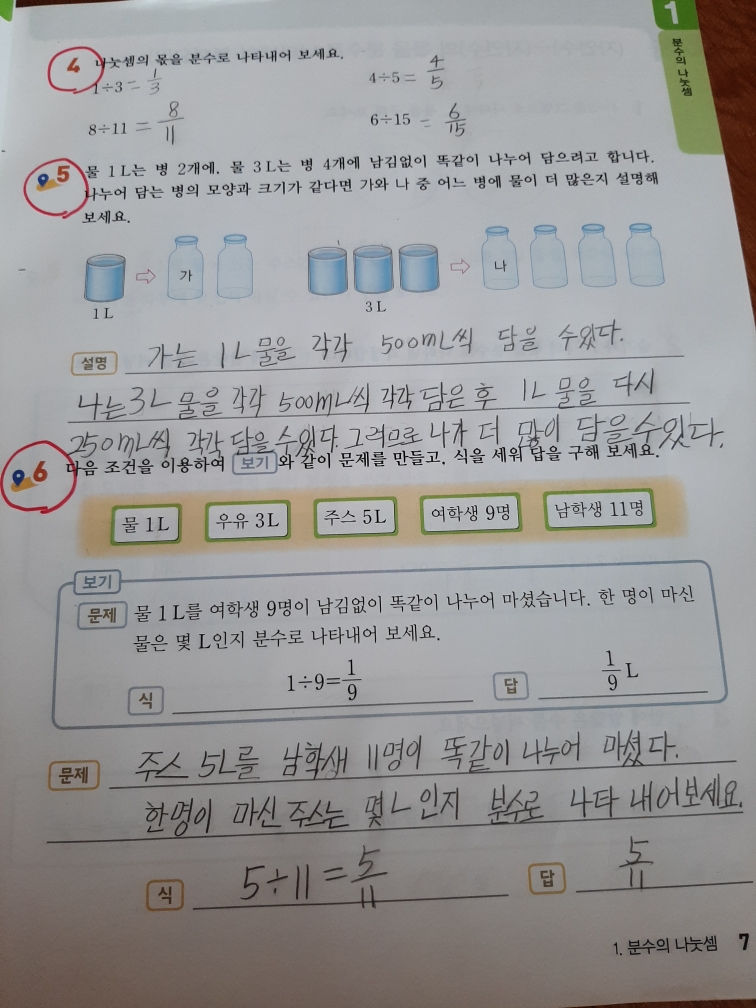 1
분수의 나눗셈
4 나눗셈의 몫을 분수로 나타내어 보세요.
1÷3 = 1/3 4÷5 = 4/5
8÷11 = 8/11 6÷15 = 6/15
5 물 1L는 병 2개에, 물 3L는 병 4개에 남김없이 똑같이 나누어 담으려고 합니다.
나누어 담는 병의 모양과 크기가 같다면 가와 나 중 어느 병에 물이 더 많은지 설명해
보세요.
가 나
1L 3L
설명 가는 1L 물을 각각 500mL씩 담을 수있다.
나는 3L 물을 각각 500mL씩 각각 담은 후 1L 물을 다시
250mL씩 각각 담을수있다. 그러므로 나가 더 많이 담을수있다.
6 다음 조건을 이용하여 보기 와 같이 문제를 만들고, 식을 세워 답을 구해 보세요.
물 1L 우유 3L 주스 5L 여학생 9명 남학생 11명
보기
문제 물 1L를 여학생 9명이 남김없이 똑같이 나누어 마셨습니다. 한 명이 마신
물은 몇 L인지 분수로 나타내어 보세요.
식 1÷9=1/9 답 1/9 L
문제 주스 5L를 남학생 11명이 똑같이 나누어 마셨다.
한명이 마신 주스는 몇 L 인지 분수로 나타 내어보세요.
식 5÷11=5/11 답 5/11
1. 분수의 나눗셈 7